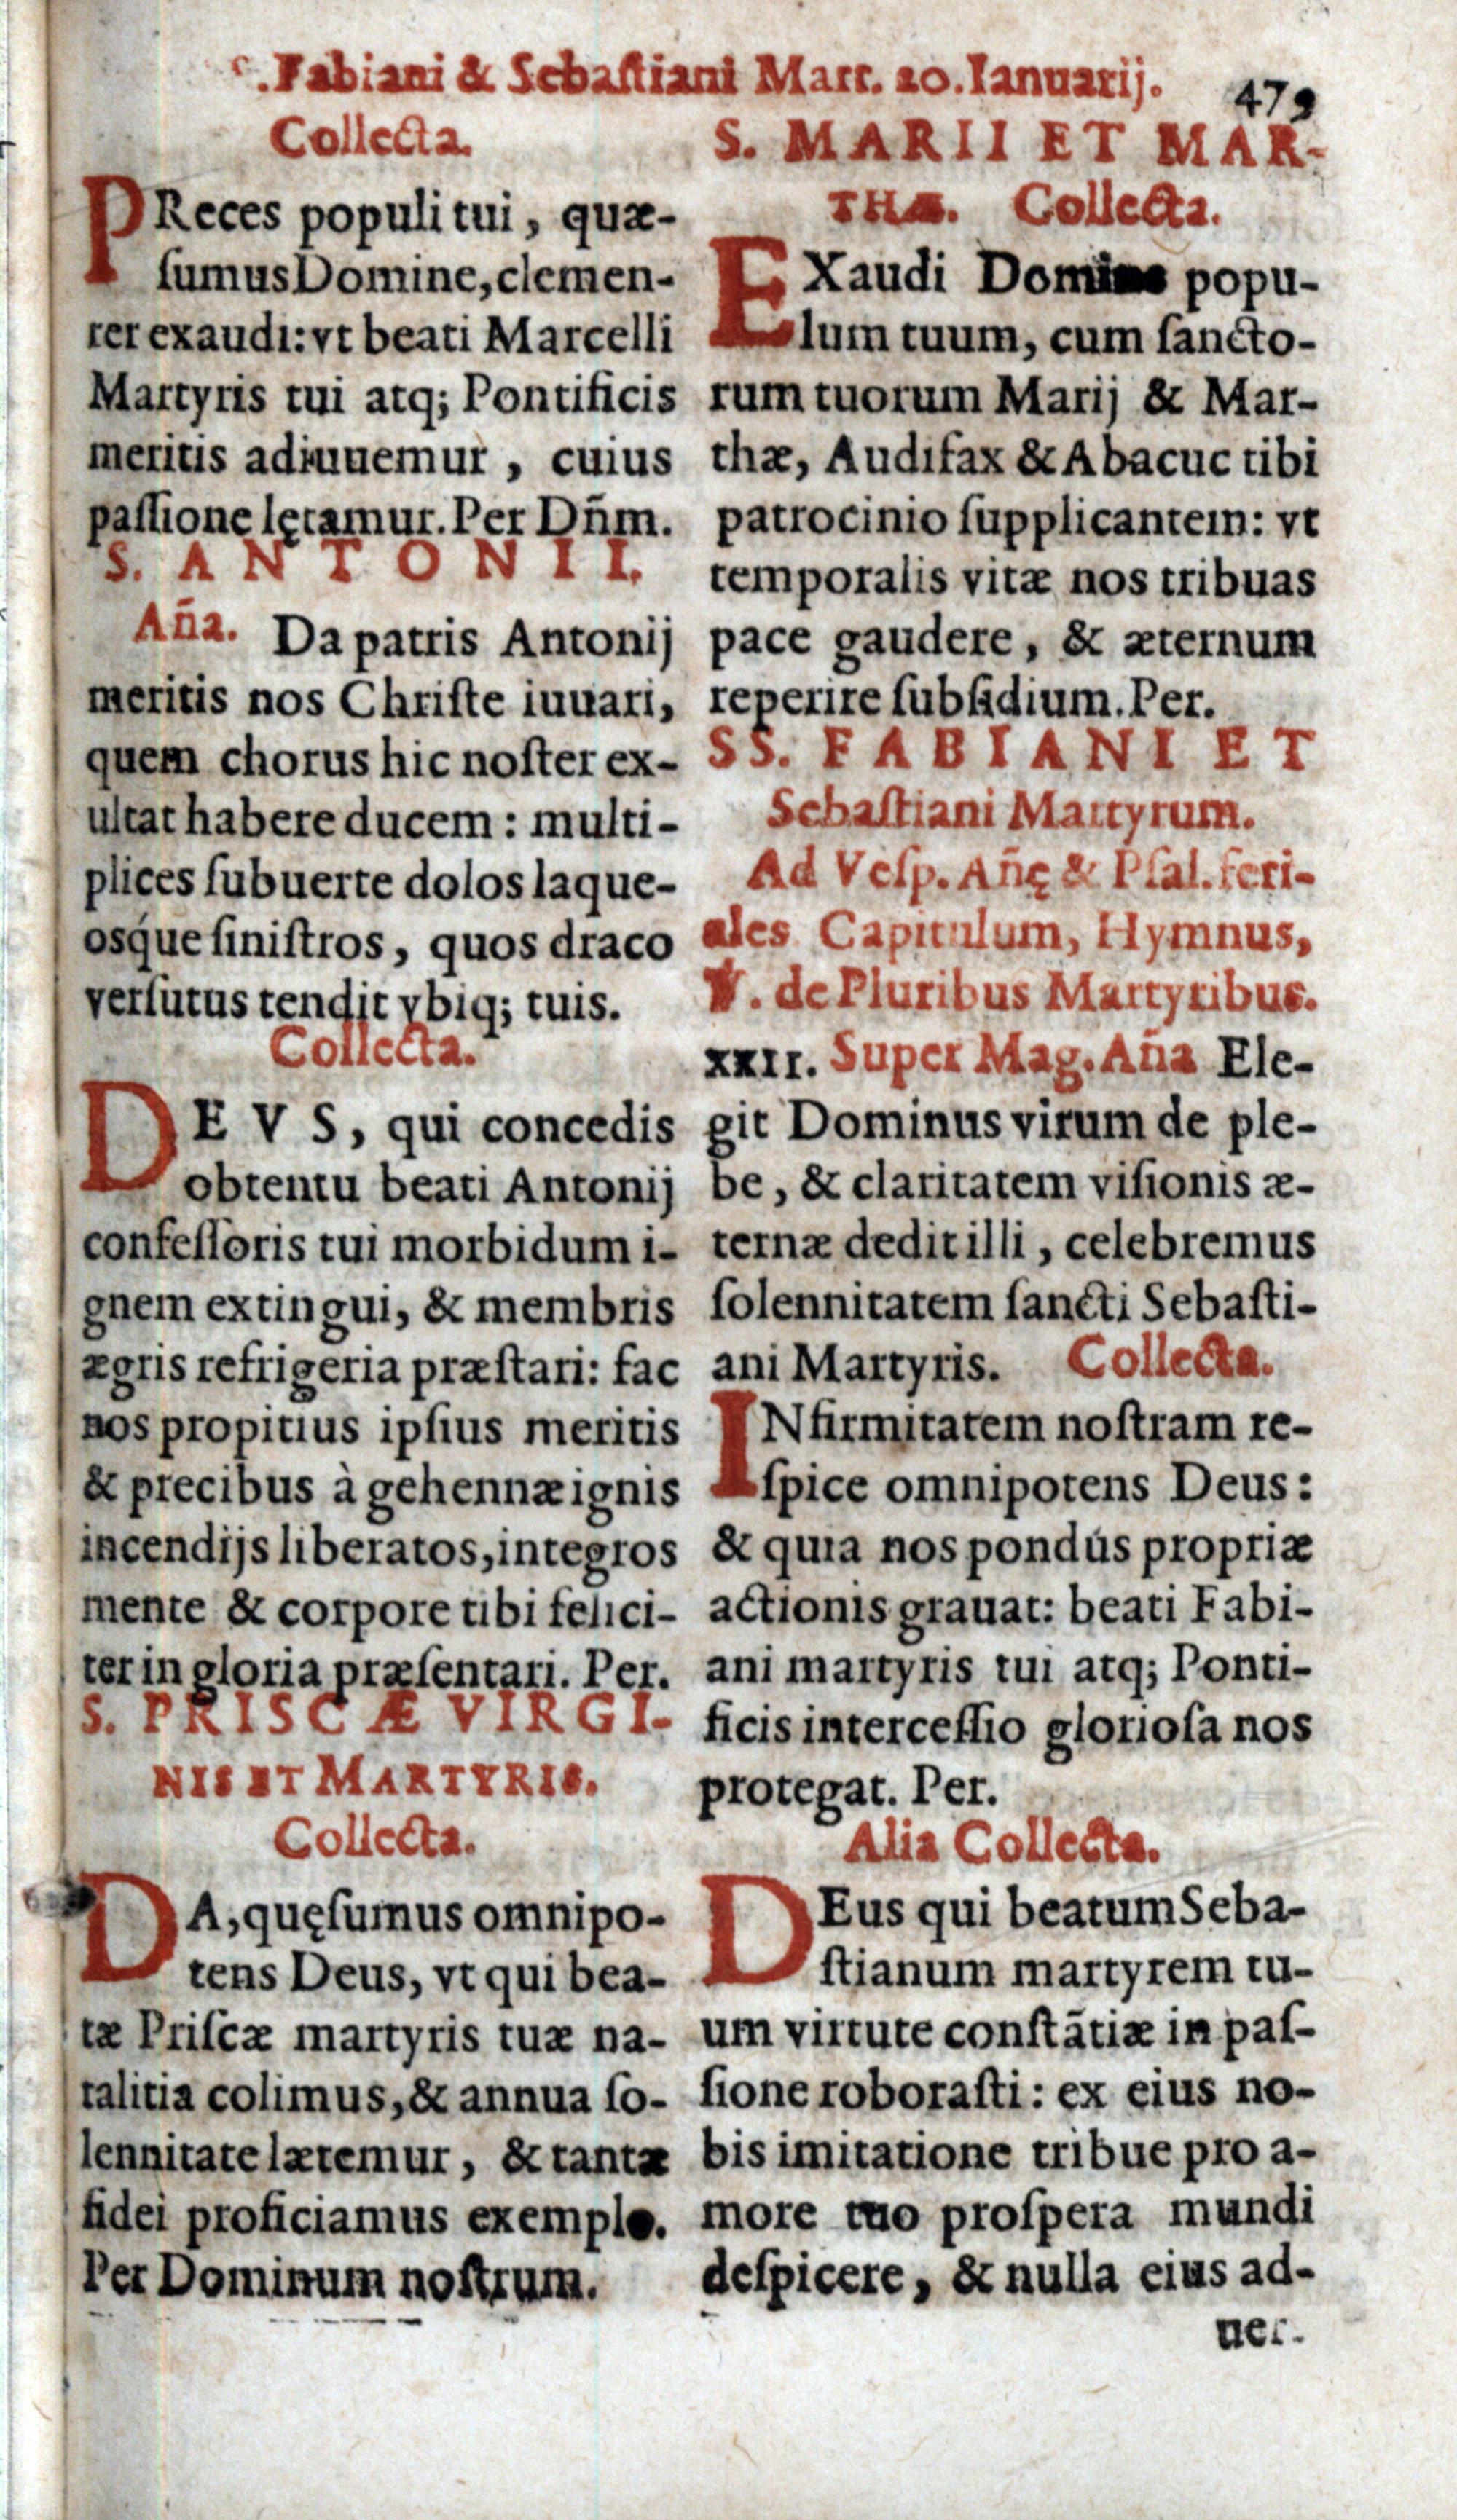 S. Fabiani & Sebaſtiani Mart. 20. Ianuarij. 479
Collecta.
PReces populi tui, quæ-
ſumus Domine, clemen-
ter exaudi: vt beati Marcelli
Martyris tui atq; Pontificis
meritis adiuuemur, cuius
paſſione lętamur. Per Dñm.
S. ANTONII.
Aña. Da patris Antonij
meritis nos Chriſte iuuari,
quem chorus hic noſter ex-
ultat habere ducem: multi-
plices ſubuerte dolos laque-
osq́ue ſiniſtros, quos draco
verſutus tendit vbiq; tuis.
Collecta.
DEVS, qui concedis
obtentu beati Antonij
confeſſoris tui morbidum i-
gnem extingui, & membris
ægris refrigeria præſtari: fac
nos propitius ipſius meritis
& precibus à gehennæ ignis
incendijs liberatos, integros
mente & corpore tibi felici-
ter in gloria præſentari. Per.
S. PRISCÆ VIRGI-
NIS ET MARTYRIS.
Collecta.
DA, quęſumus omnipo-
tens Deus, vt qui bea-
tæ Priſcæ martyris tuæ na-
talitia colimus, & annua ſo-
lennitate lætemur, & tantæ
fidei proficiamus exemplo.
Per Dominum noſtrum.
S. MARII ET MAR-
THÆ. Collecta.
EXaudi Domine popu-
lum tuum, cum ſancto-
rum tuorum Marij & Mar-
thæ, Audifax & Abacuc tibi
patrocinio ſupplicantem: vt
temporalis vitæ nos tribuas
pace gaudere, & æternum
reperire ſubſidium. Per.
SS. FABIANI ET
Sebaſtiani Martyrum.
Ad Veſp. Añę & Pſal. feri-
ales Capitulum, Hymnus,
℣. de Pluribus Martyribus.
XXII. Super Mag. Aña Ele-
git Dominus virum de ple-
be, & claritatem viſionis æ-
ternæ dedit illi, celebremus
ſolennitatem ſancti Sebaſti-
ani Martyris. Collecta.
INfirmitatem noſtram re-
ſpice omnipotens Deus:
& quia nos pondus propriæ
actionis grauat: beati Fabi-
ani martyris tui atq; Ponti-
ficis interceſſio glorioſa nos
protegat. Per.
Alia Collecta.
DEus qui beatum Seba-
ſtianum martyrem tu-
um virtute conſtãtiæ in paſ-
ſione roboraſti: ex eius no-
bis imitatione tribue pro a-
more tuo proſpera mundi
deſpicere, & nulla eius ad-
uer-